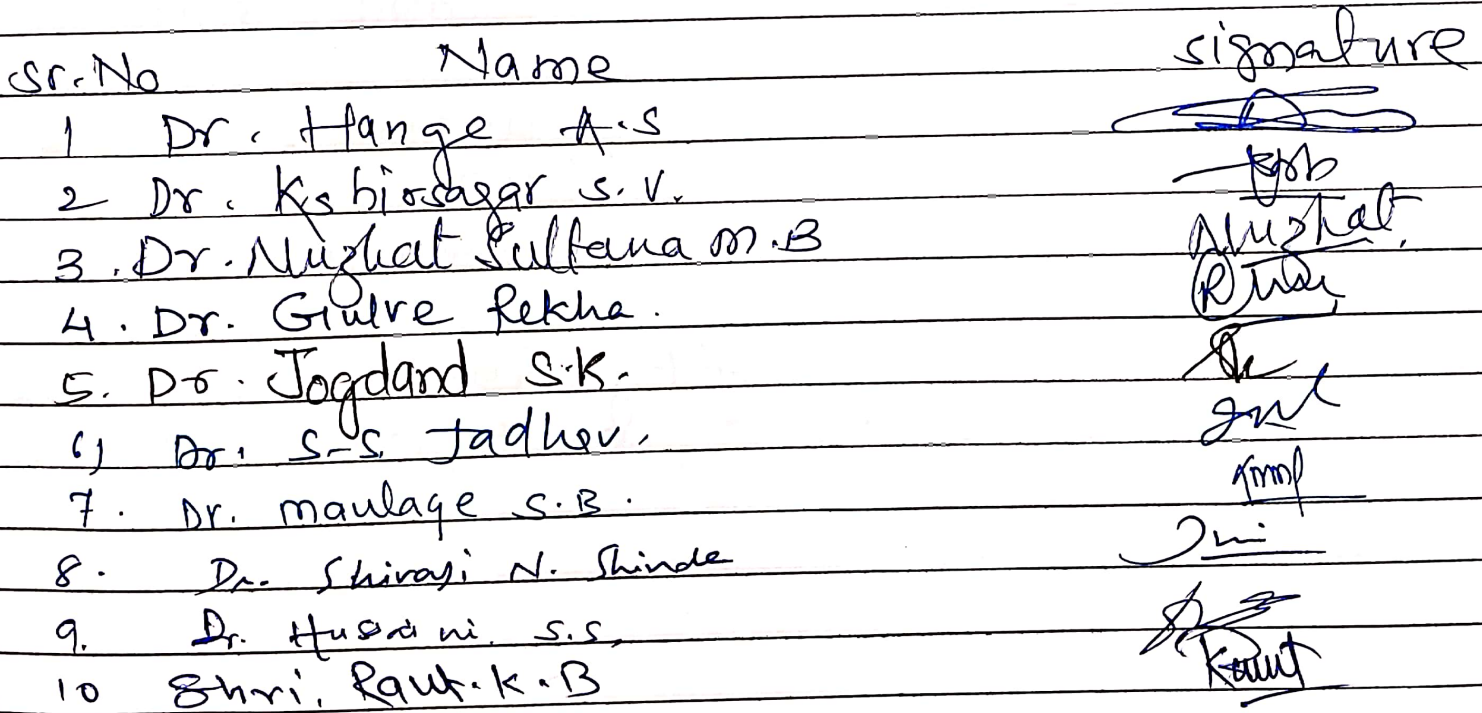 Sr. No Name signature
1 Dr. Hange A.S
2 Dr. Kshirsagar S.V.
3. Dr. Nuzhat Sultana M.B Nuzhat
4. Dr. Gulve Rekha.
5. Dr. Jogdand S.K.
6) Dr. S.S. Jadhav.
7. Dr. Maulage S.B.
8. Dr. Shivaji N. Shinde
9. Dr. Hussaini S.S.
10 Shri. Raut. K.B Raut